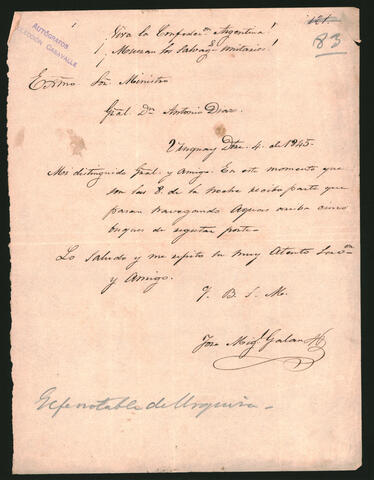 AUTÓGRAFOS
COLECCIÓN CASAVALLE
121.
83
¡Viva la Confeder.on Argentina!
¡Mueran los Salvag.s Unitarios!
Exmo Sor. Ministro
Gral. Dn. Antonio Diaz.
Uruguay Dbre. 4. de 1845.
Mi distinguido Gral. y Amigo. En este momento que
son las 8. de la noche recibo parte que
pasan navegando Aguas arriba cinco
buques de regular porte.
Lo Saludo y me repito su muy Atento Serv.or
y Amigo.
Q. B. S. M.
Jose Mig.l Galan
Gefe notable de Urquiza.